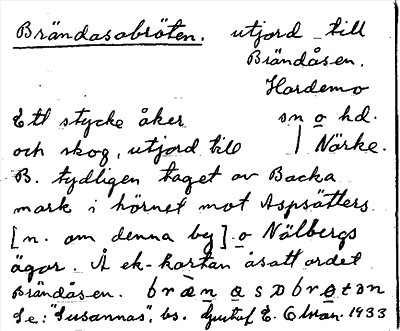 Brändasabröten. utjord till
Brändåsen.
Hardemo
Ett stycke åker sn o hd.
och skog, utjord till Närke.
B. tydligen taget av Backa
mark i hörnet mot Aspsätters
[n. om denna by] o Nälbergs
ägor. Å ek-kartan åsatt ordet
Brändåsen.
Se: "Susannas", bs. Gustaf E. 1933